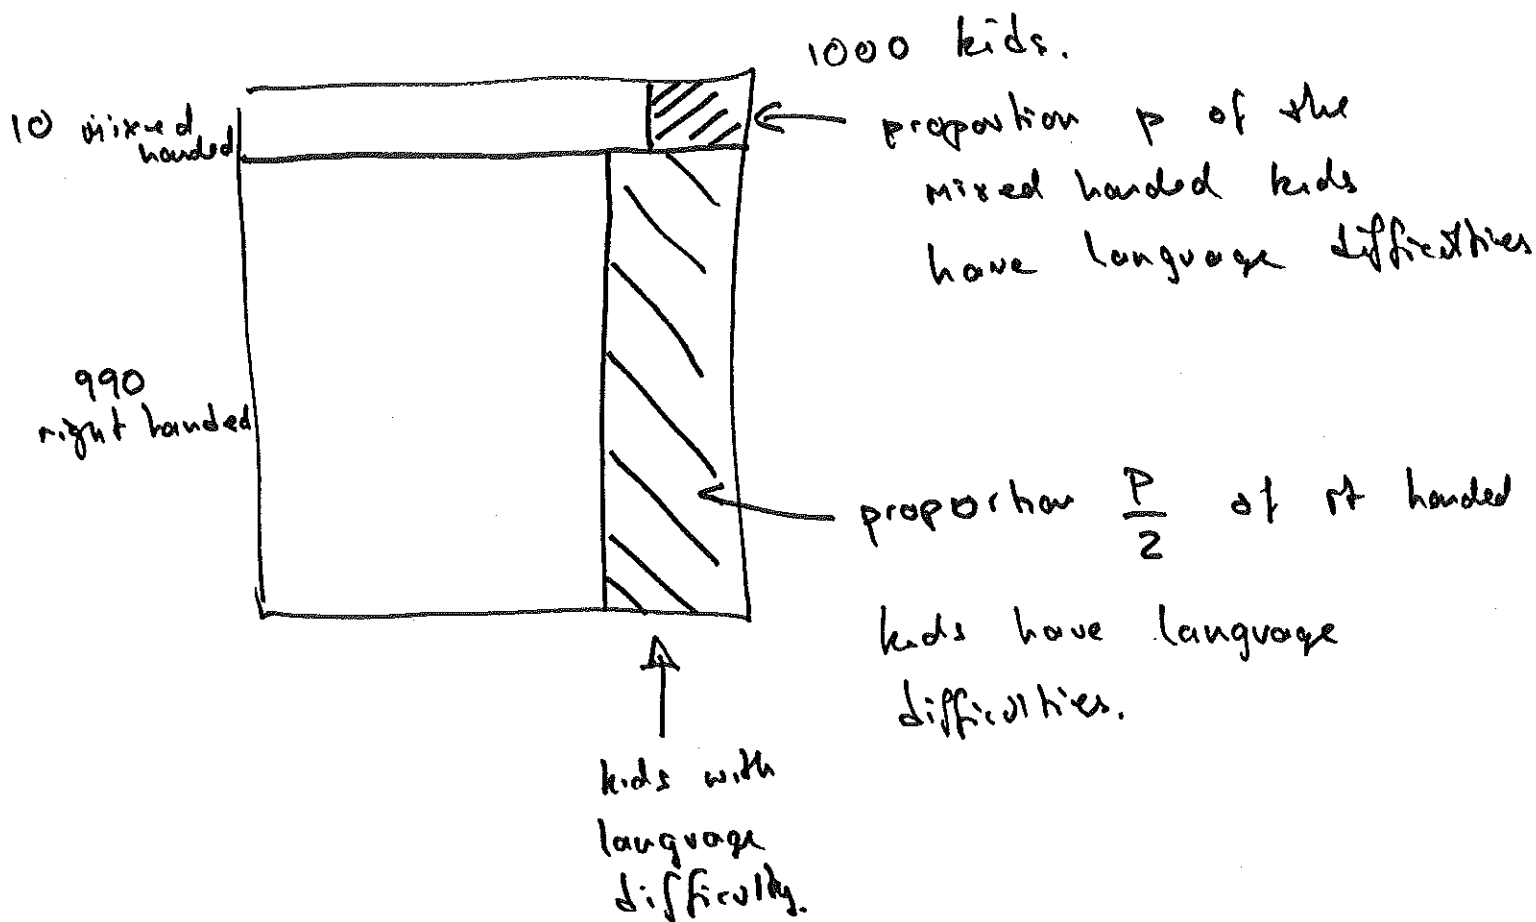 1000 kids.
10 mixed
handed
proportion p of the
mixed handed kids
have language difficulties
990
right handed
proportion P/2 of rt handed
kids have language
difficulties.
kids with
language
difficulty.